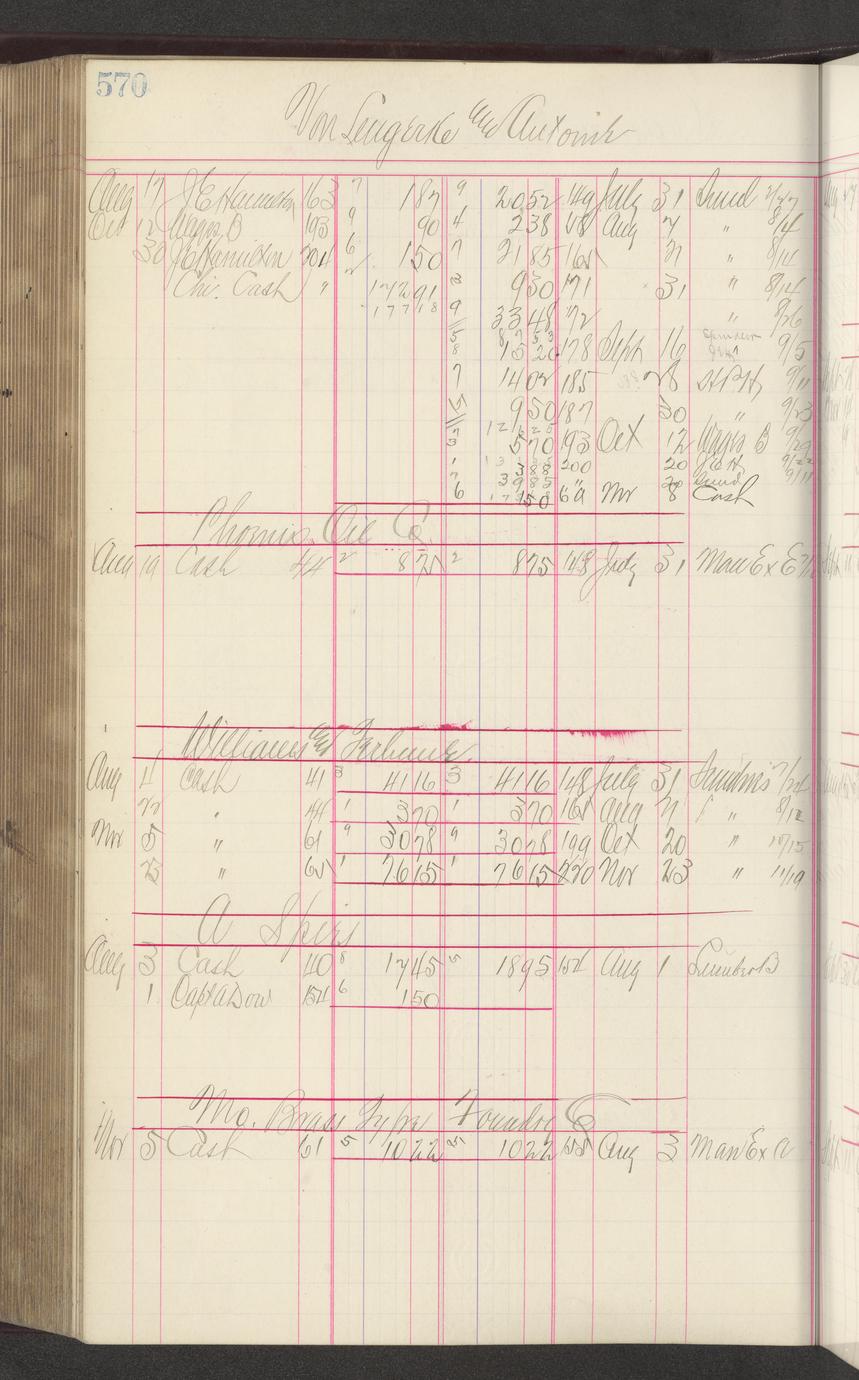 570
Von Lengerke and Antoine
Aug 17 J E Hamilton 163 7 187 9 2052 149 July 31 Sund 7/27
Oct 12 Wages B 193 9 90 4 238 158 Aug 7 " 8/4
30 J E Hamilton 204 6 150 7 2185 165 21 " 8/14
Chi. Cash " 17291 3 930 171 31 " 8/14
17718 9 3348 172 " 8/26
8 1520 178 Sept 16 9/5
7 1402 185 28 9/11
5 950 187 30 " 9/23
3 570 193 Oct 12 Wages B 9/29
1 388 200 20
7 3985 20 Sund
6 150 Nov 8 Cash
Phoenix Oil Co.
Aug 19 Cash 44 2 875 2 875 148 July 31 Man Ex E
Williams and
Aug 4 Cash 41 3 4116 3 4116 148 July 31 Sundries 7/24
22 " 44 1 370 1 370 165 Aug 21 " 8/12
Nov 5 " 61 9 3078 9 3078 199 Oct 20 " 10/15
25 " 65 1 7615 1 7615 220 Nov 23 " 11/19
A Spirs
Aug 3 Cash 40 8 1745 5 1895 154 Aug 1 Lumber B
1 Capt A Dow 154 6 150
Mo. Brass Type Foundry Co
Nov 5 Cash 61 5 1022 5 1022 155 Aug 3 Man Ex A